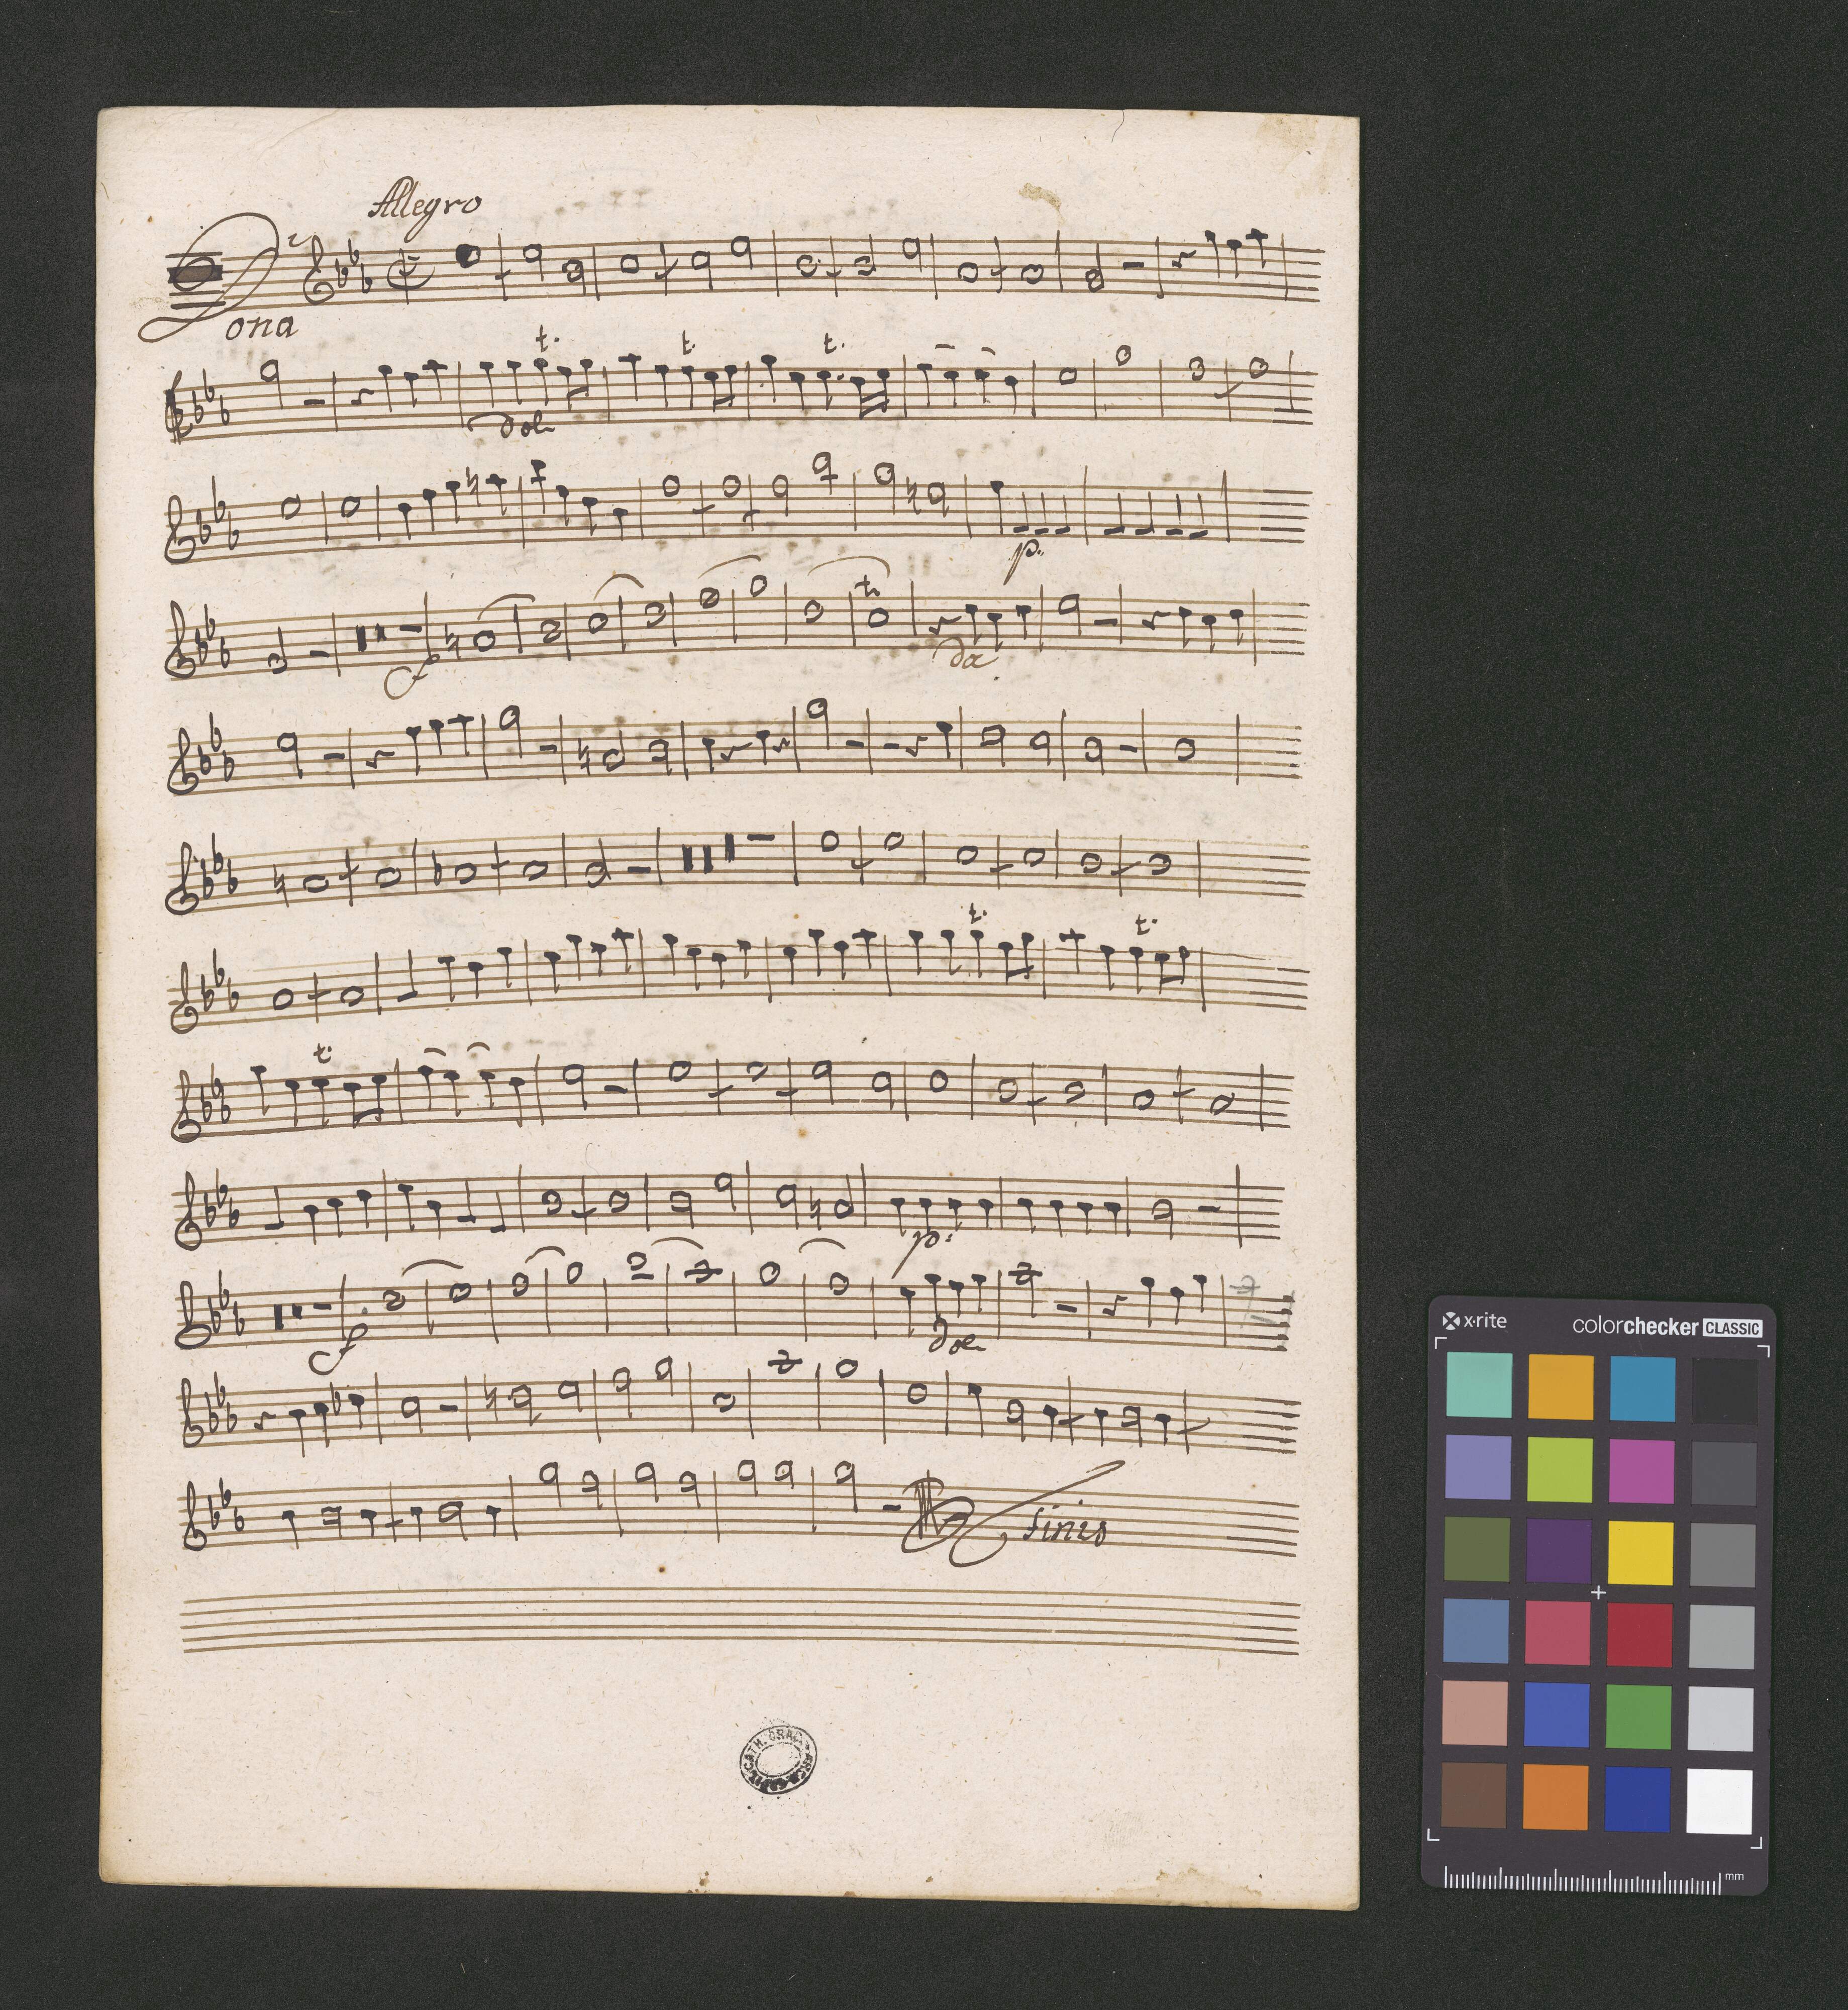 Allegro
Dona
t. t. t.
dol
p.
f
da
t. t.
t.
p:
f
dol
finis
x-rite
colorchecker CLASSIC
mm